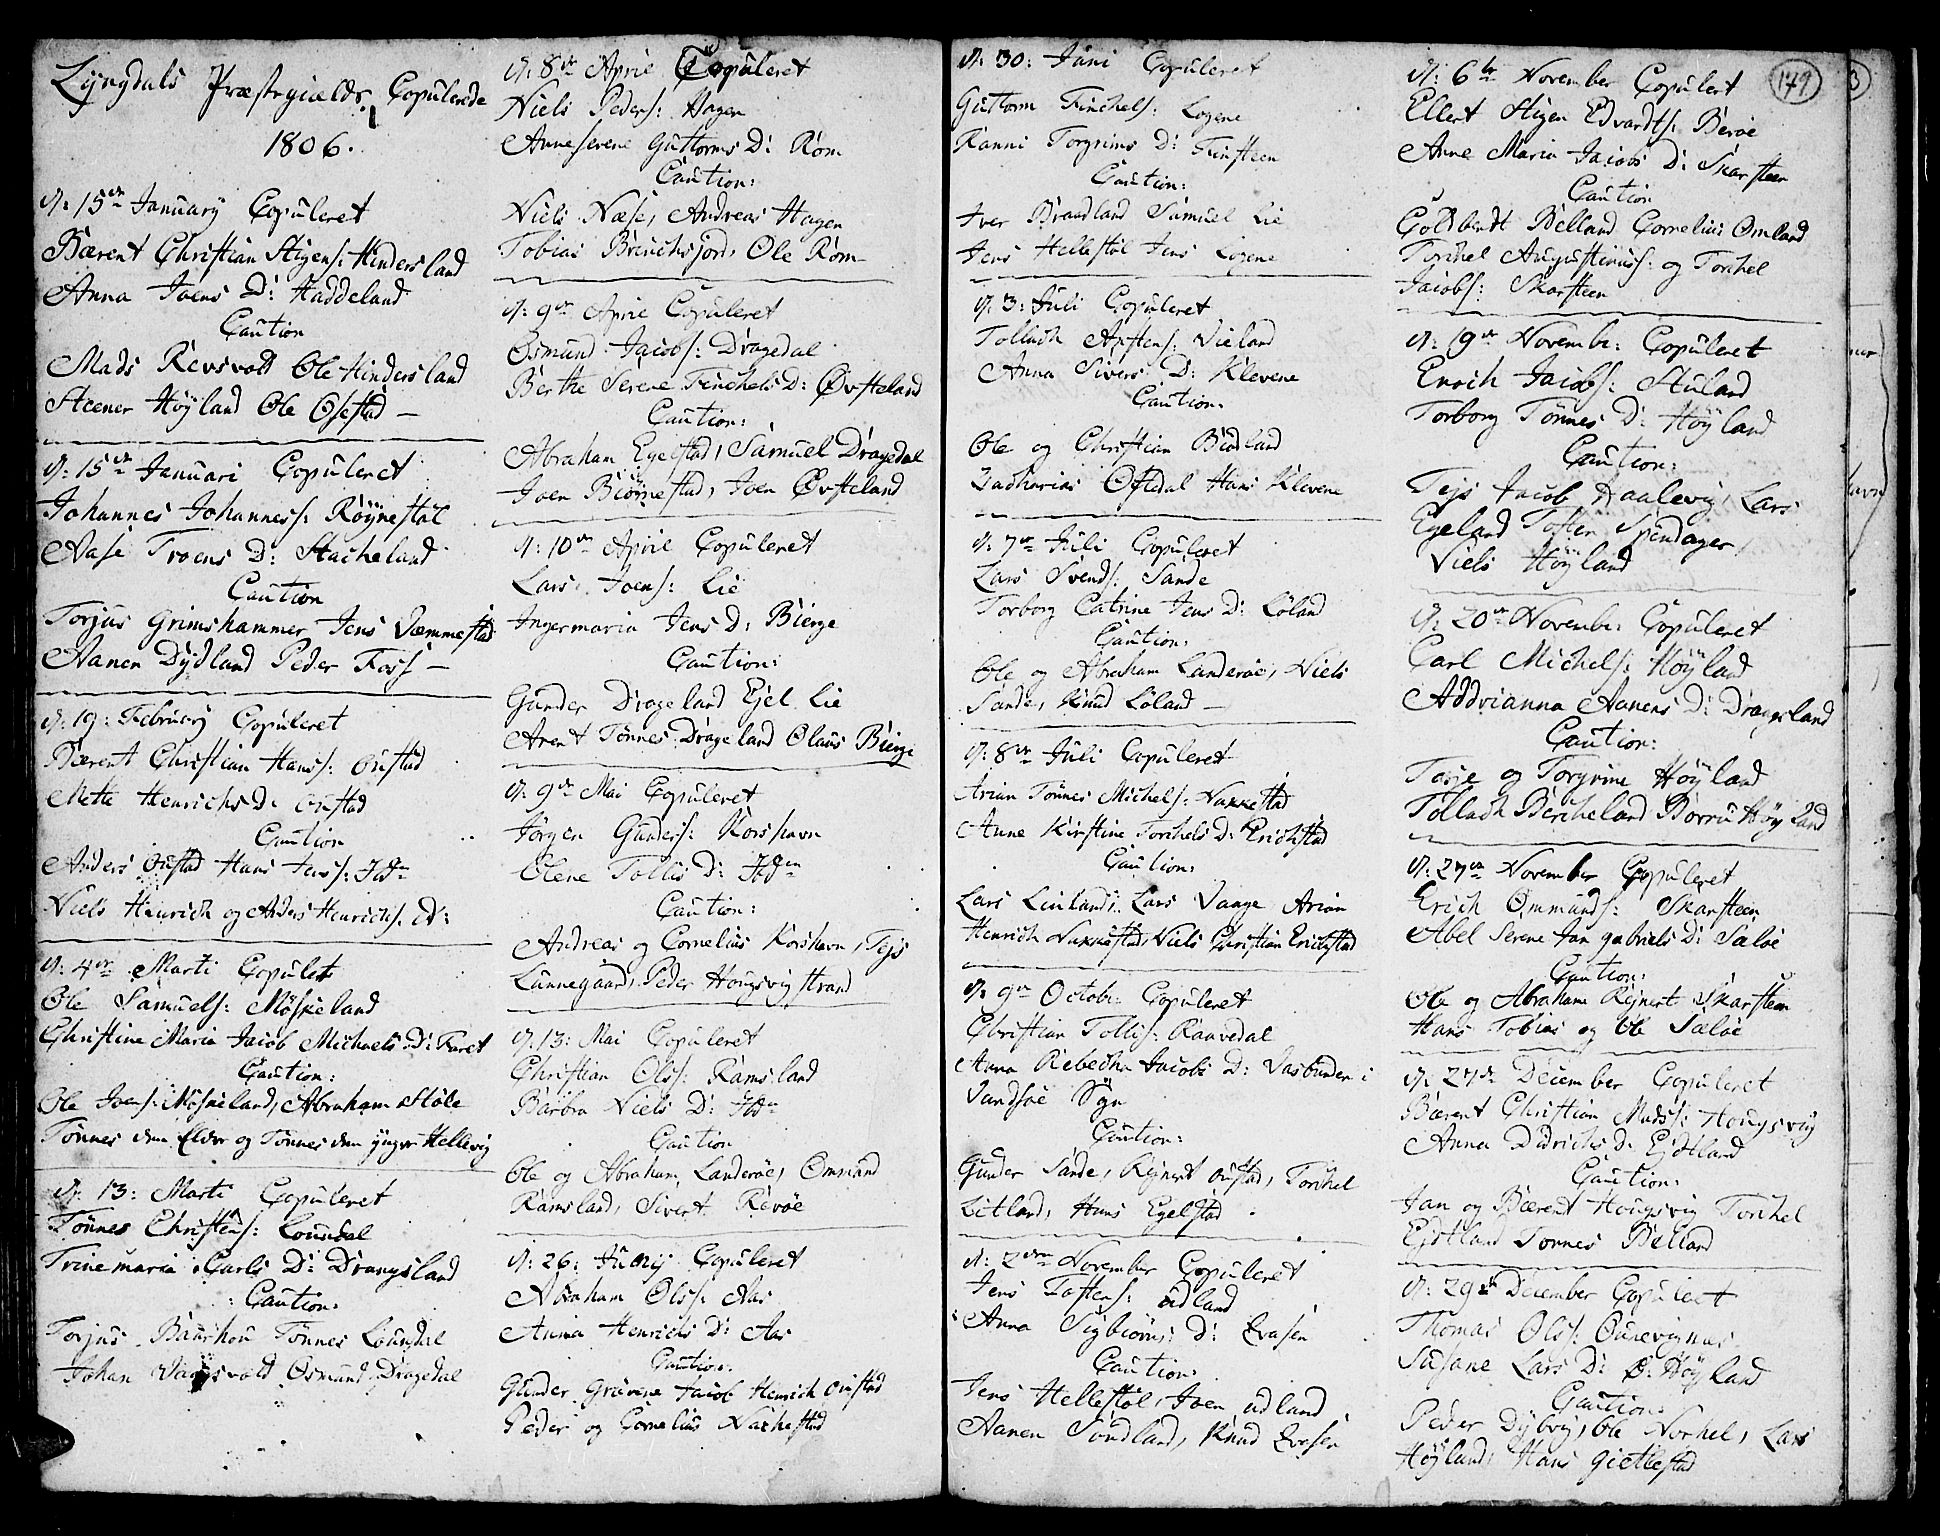 Lyngdals Præstegields Copulerede
1806.
d: 15de January Copuleret
Bærent Christian Stigens: Hindersland
Anna Joens D: Haddeland
Caution
Mads Revsvold Ole Hindersland
Steener Höyland Ole Osestad —
d: 15de Januari Copuleret
Johannes Johanness: Röynestöl
Aase Troens D: Stacheland
Caution
Torjus Grimshammer Jens Væmmestad
Aanen Dydland Peder Foss —
d: 19: February Copuleret
Bærent Christian Hanss: Oustad
Mette Henrichs D: Oustad
Caution
Anders Oustad Hans Jenss: Ibdn
Niels Henrich og Anders Henrichs: id:
d: 4de Marti Copulet
Ole Samuels: Möskeland
Christine Maria Jacob Michaels D: Faret
Caution:
Ole Joens: Möskeland, Abraham Støle
Tönnes den Elder og Tönnes den ynger Hellevig
d: 13: Marti Copuleret
Tönnes Christens: Loundal
Trinemaria Carls D: Drangsland
Caution:
Torjus Baurhou Tönnes Loundal
Johan Vangsvold Osmund Dragedal
d: 8de April Copuleret
Niels Peders: Hagen
Anneserene Guttorms D: Röm
Caution:
Niels Næse, Andreas Hagen
Tobias Brenchsjord, Ole Röm
d: 9de April Copuleret
Osmund Jacobs: Dragedal
Berthe Serene Tenchels D: Øvsteland
Caution:
Abraham Egelstad, Samuel Dragedal
Joen Biörnestad, Joen Øvsteland
d: 10de April Copuleret
Lars Joens: Lie
Ingermaria Jens D: Bierge
Caution:
Gunder Drageland Ejel Lie
Arent Tönnes Drageland Olaus Bierge
d: 9de Mai Copuleret
Jörgen Gunders: Korshavn
Olene Tollis D: Ibdn
Caution:
Andreas og Cornelius Korshavn, Tejs
Lunnegaard, Peder Hougsvigstrand
d: 13: Mai Copuleret
Christian Olss: Ramsland
Barbra Niels D: Ibdn
Caution
Ole og Abraham Landeröe, Omund
Ramsland, Sivert Revöe
d: 26: Juny Copuleret
Abraham Olss: Aas
Anna Henrichs D: Aas
Caution:
Gunder Grövene Jacob Henrich Oustad
Peder og Cornelius Nakkestad
d: 30: Juni Copuleret
Guttorm Tenchels: Logene
Ranni Torgrims D: Tinsteen
Caution:
Iver Braadland Samuel Lie
Jens Hellestöl Jens Logene
d: 3: Juli Copuleret
Tollach Austens: Vieland
Anna Sivers D: Klevene
Caution:
Ole og Christian Biodland
Zacharias Oftedal Hans Klevene
d: 7de Juli Copuleret
Lars Svends: Sande
Torborg Catrine Jens D: Löland
Caution:
Ole og Abraham Landeröe, Niels
Sande, Knud Löland —
d: 8de Juli Copuleret
Arian Tönnes Michels: Nakkestad
Anne Kirstine Torchels D: Erichstad
Caution:
Lars Linland, Lars Vaage Arian
Henrich Nakkestad, Niels Christian Erichstad
d: 9de Octobr: Copuleret
Christian Tollis: Raavedal
Anna Rebecka Jacobs D: Vasbunden i
Vandsöe Sogn
Caution:
Gunder Sande, Rejnert Oustad, Torchel
Litland, Hans Egelstad
d: 2den November Copuleret
Jens Toftens: Udland
Anna Sigbiörns: D: Qvasen
Caution:
Jens Hellestöl, Joen Udland
Aanen Sundland, Knud Qvasen
149
d: 6te November Copulert
Ellert Stigen Edvardts: Beröe
Anne Maria Jacobs D: Skarsteen
Caution
Goldbrodt Belland Cornelius Omland
Torchel Augustinuss: og Torchel
Jacobs: Skarsteen
d: 19de Novembr: Copuleret
Enoch Jacobs: Stuland
Torborg Tönnes D: Höyland
Caution:
Tejs Jacob Haalevig, Lars
Egeland Tosten Spindager,
Niels Höyland
d: 20de Novembr: Copuleret
Carl Michels: Höyland
Addrianna Aanens D: Drangsland
Caution:
Terje og Torgrime Höyland
Tollach Bercheland Börru Höyland
d: 27de November Copuleret
Erich Ommunds: Skarsteen
Abel Serene Jan gabriels D: Sælöe
Caution:
Ole og Abraham Rejnert Skarsteen
Hans Tobias og Ole Sælöe
d: 27de December Copuleret
Bærent Christian Madss: Hougsvig
Anna Didrichs D: Ejdtland
Caution:
Jan og Bærent Hougsvig Torchel
Ejdtland Tönnes Belland
d: 29de December Copuleret
Thomas Olss: Qurevignes
Susane Lars D: Ø: Höyland
Caution:
Peder Dybvig, Ole Norhel, Lars
Höyland, Hans Giellestad